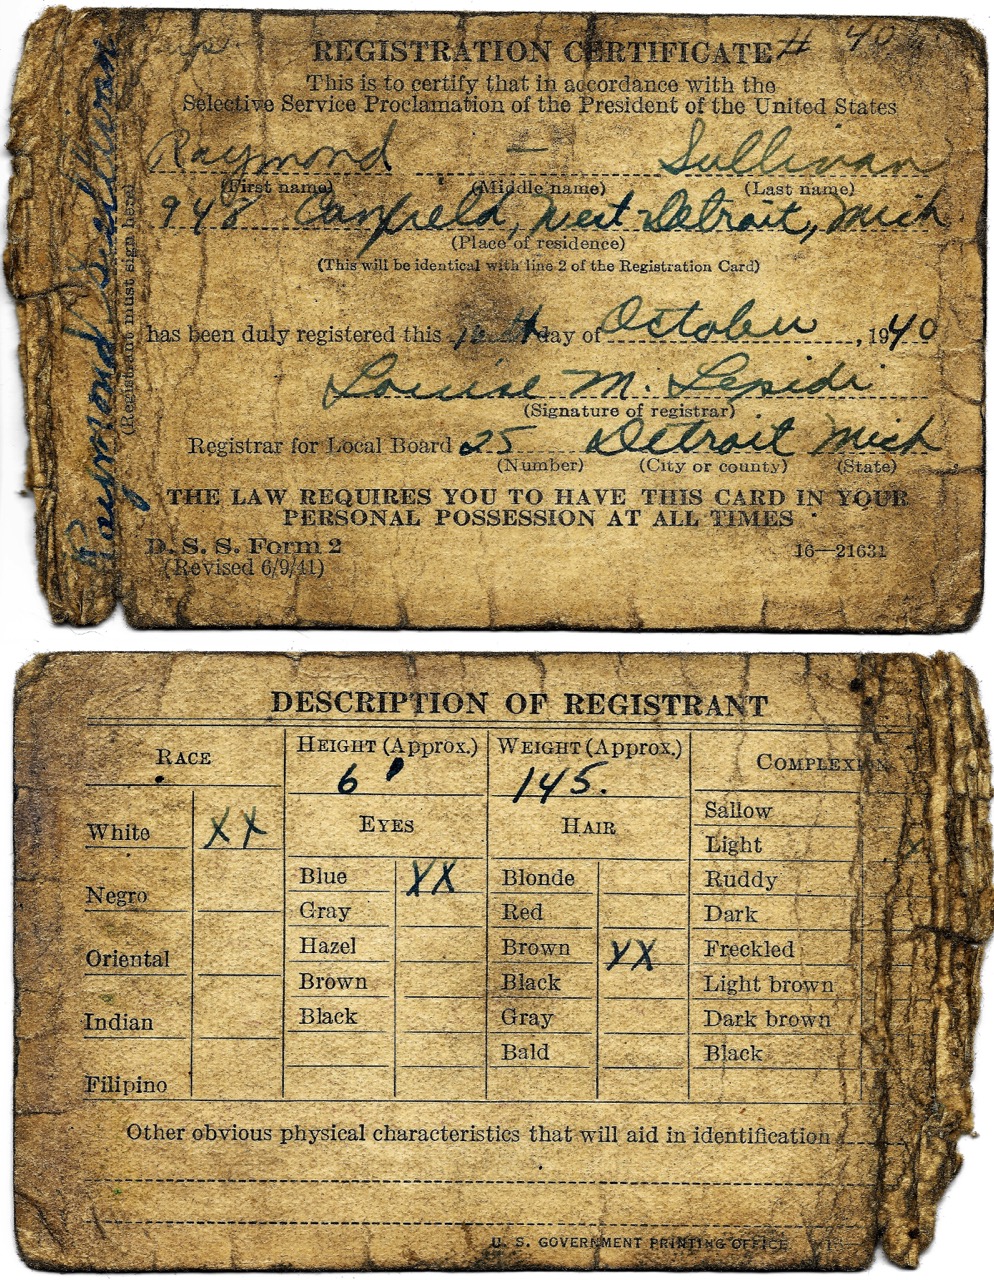 REGISTRATION CERTIFICATE # 40
This is to certify that in accordance with the
Selective Service Proclamation of the President of the United States
Raymond — Sullivan
(First name) (Middle name) (Last name)
948 Canfield, West Detroit, Mich
(Place of residence)
(This will be identical with line 2 of the Registration Card)
has been duly registered this 16th day of October, 1940
Louise M. Lepidi
(Signature of registrar)
Registrar for Local Board 25 Detroit Mich
(Number) (City or county) (State)
THE LAW REQUIRES YOU TO HAVE THIS CARD IN YOUR
PERSONAL POSSESSION AT ALL TIMES
D. S. S. Form 2
(Revised 6/9/41)
16—21631
Raymond Sullivan
(Registrant must sign here)
DESCRIPTION OF REGISTRANT
RACE HEIGHT (Approx.) WEIGHT (Approx.) COMPLEXION
6' 145.
EYES HAIR
White XX
Negro
Oriental
Indian
Filipino
Blue XX
Gray
Hazel
Brown
Black
Blonde
Red
Brown XX
Black
Gray
Bald
Sallow
Light
Ruddy
Dark
Freckled
Light brown
Dark brown
Black
Other obvious physical characteristics that will aid in identification
U. S. GOVERNMENT PRINTING OFFICE